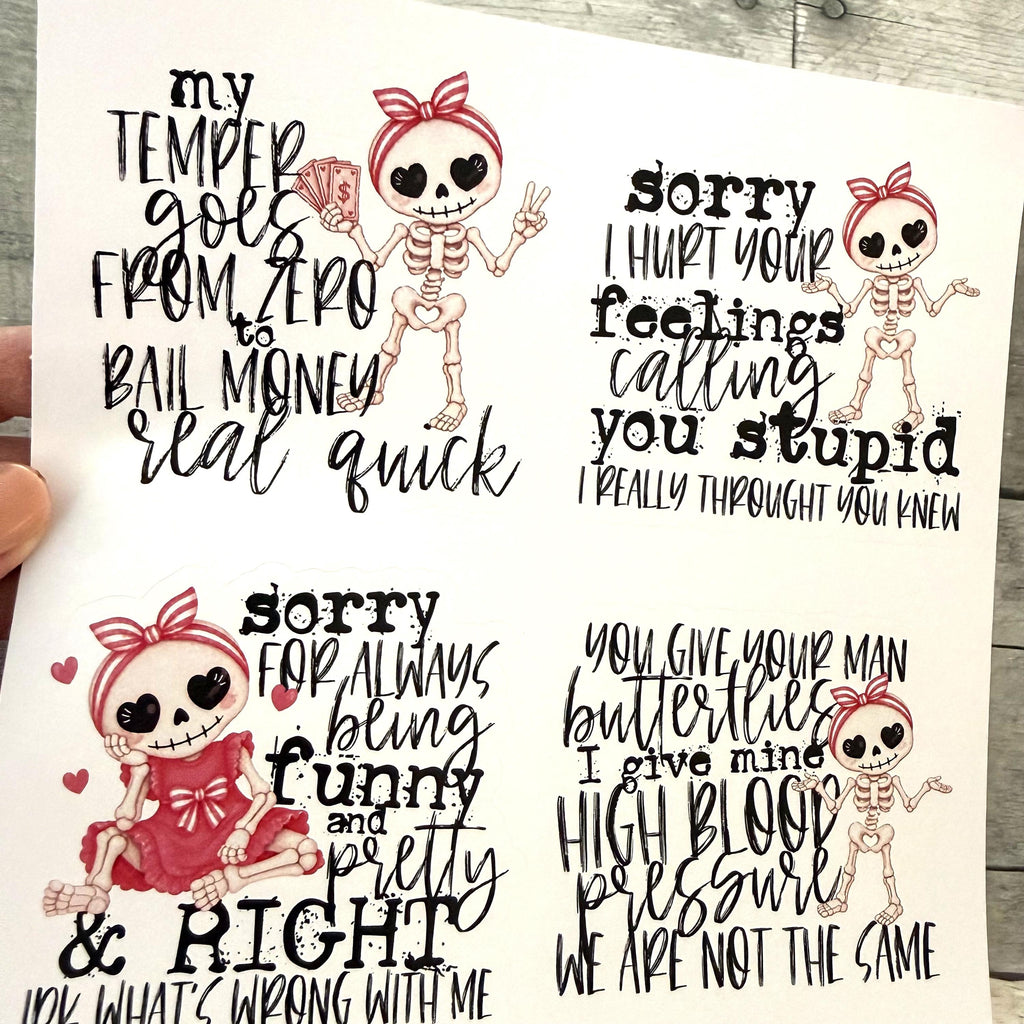 my
TEMPER
goes
FROM ZERO
to
BAIL MONEY
real quick
$
sorry
I HURT YOUR
feelings
calling
you stupid
I REALLY THROUGHT YOU KNEW
sorry
FOR ALWAYS
being
funny
and
pretty
& RIGHT
IDK WHAT'S WRONG WITH ME
YOU GIVE YOUR MAN
butterflies
I give mine
HIGH BLOOD
pressure
WE ARE NOT THE SAME